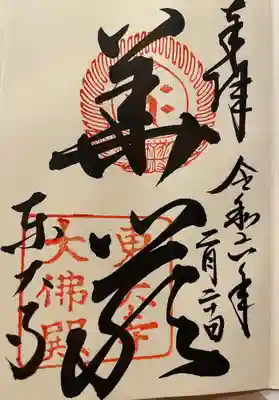 奉拝
令和六年
二月二十日
華嚴
東大寺
東大寺
大佛殿